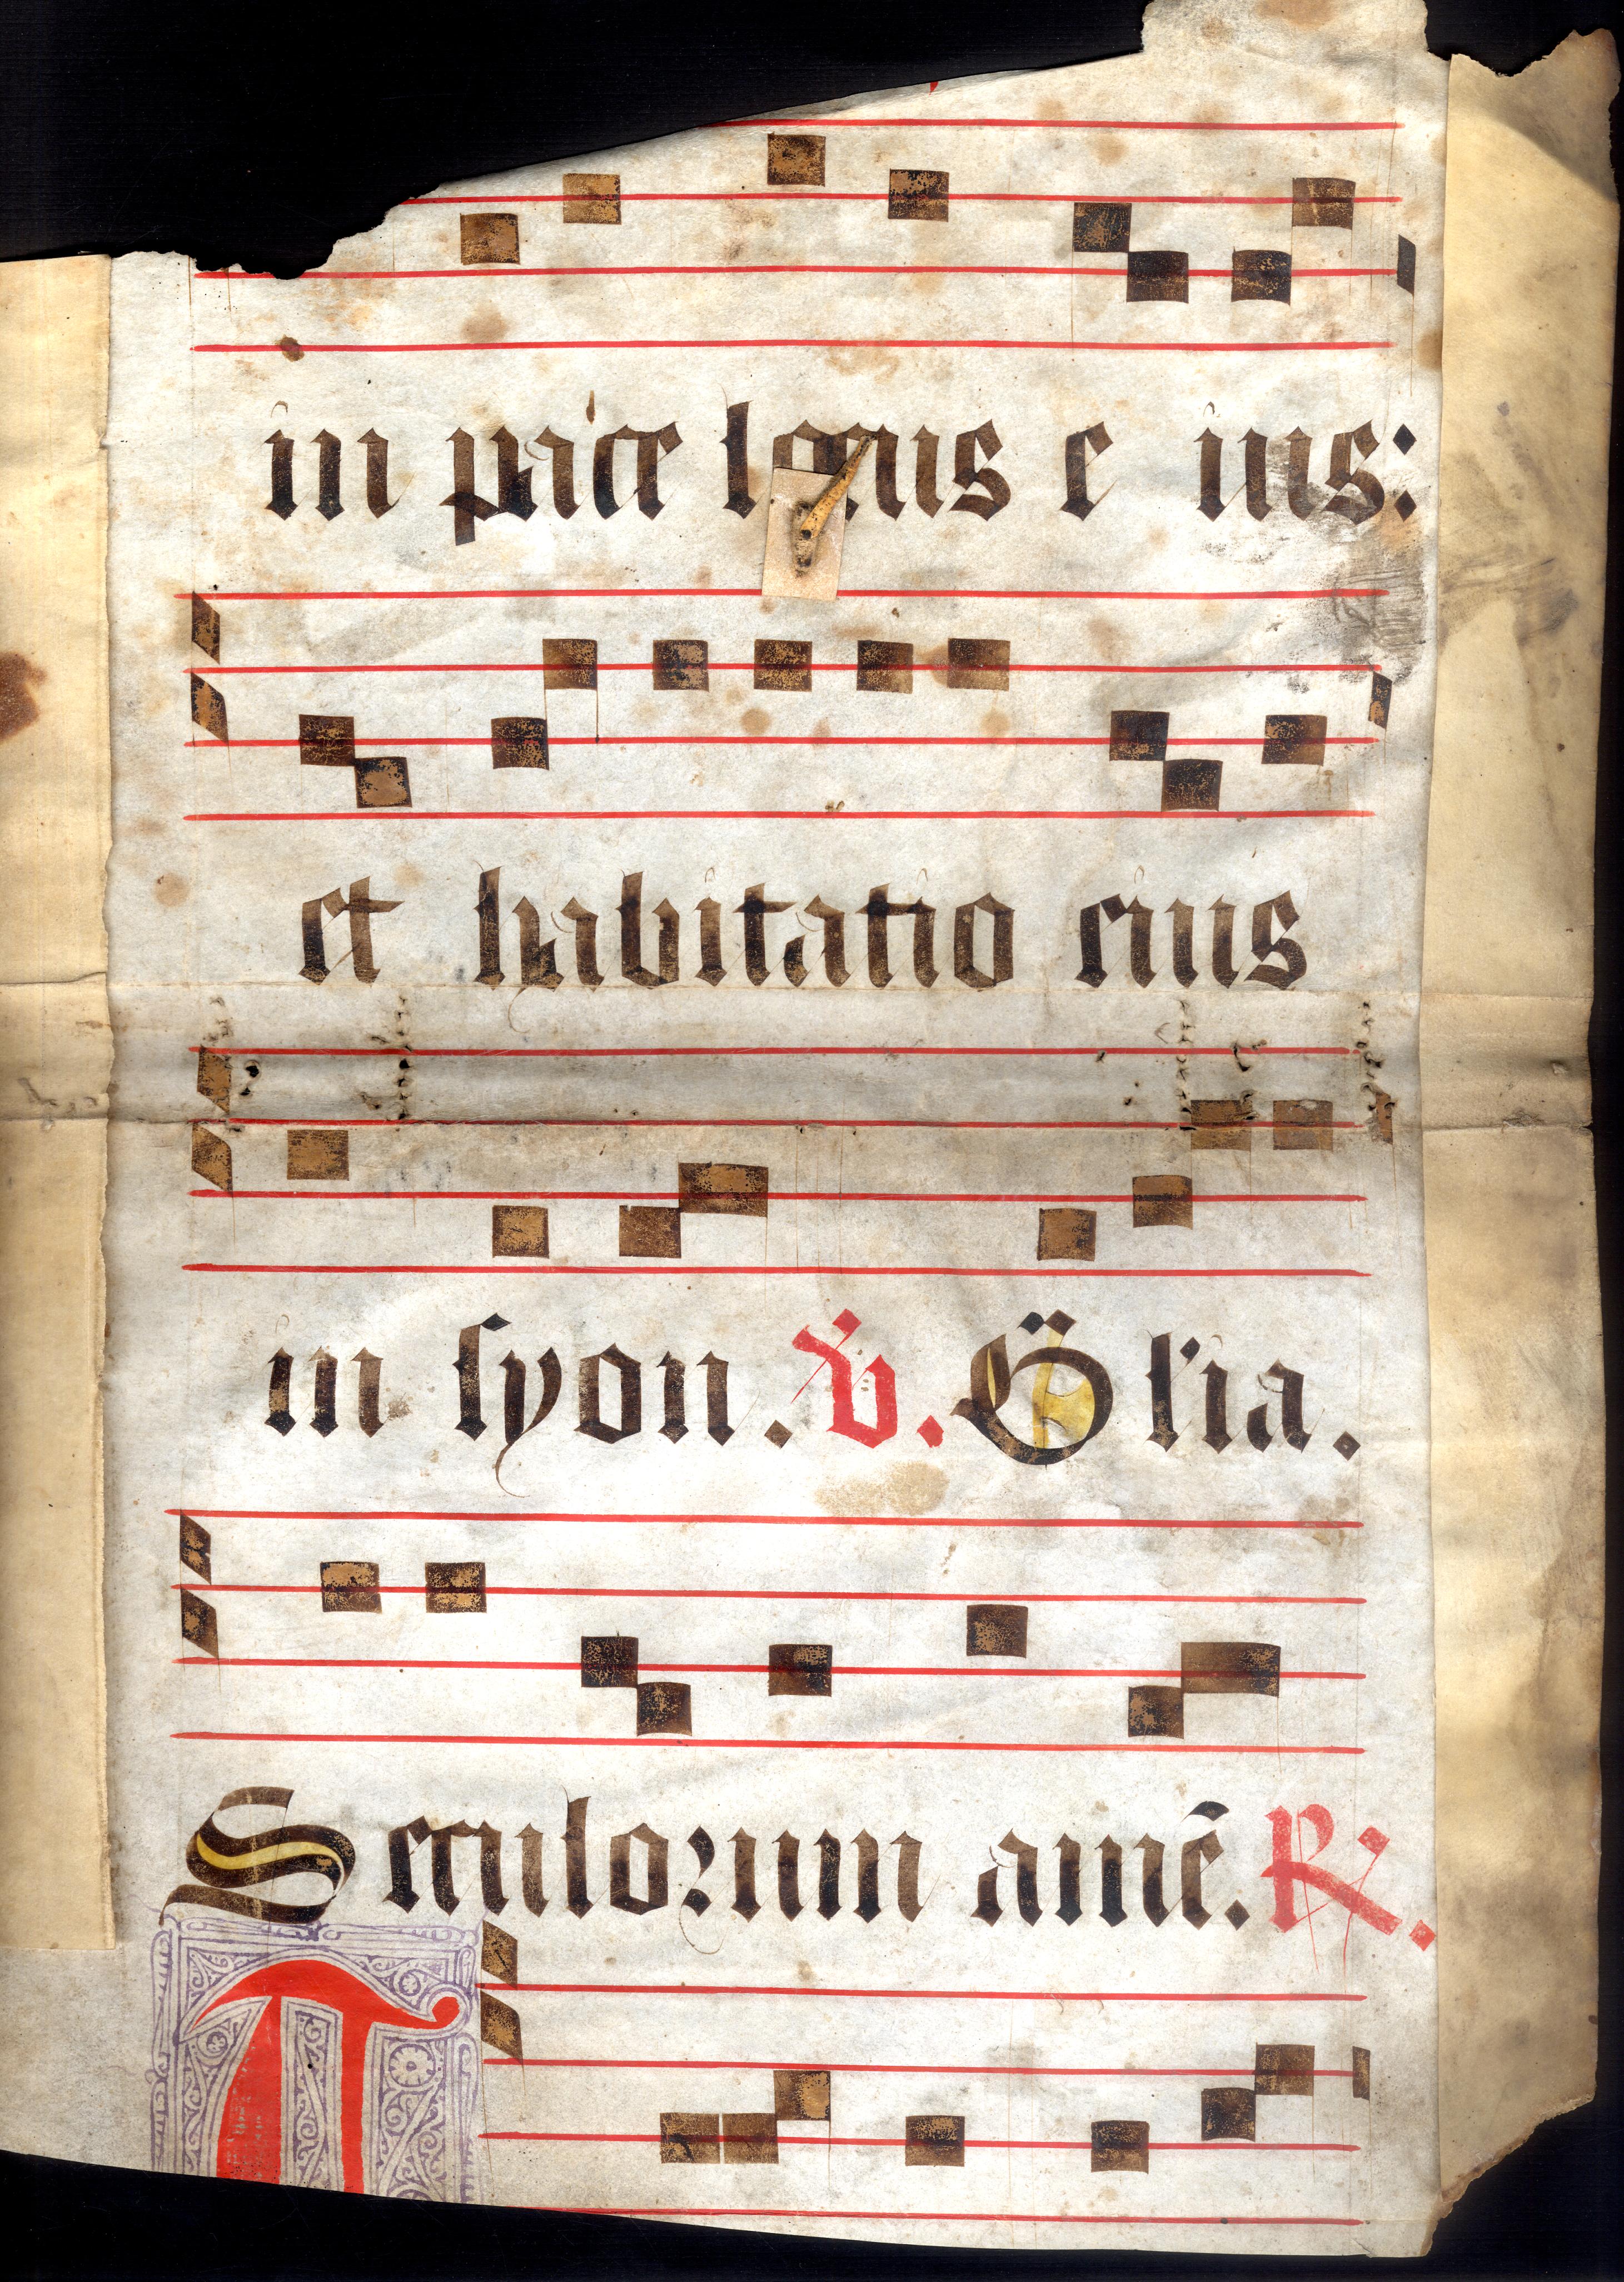 in pace locus e ius:
et habitatio eius
in syon. ℣. Gl'ia.
Seculorum amē. ℟.
T